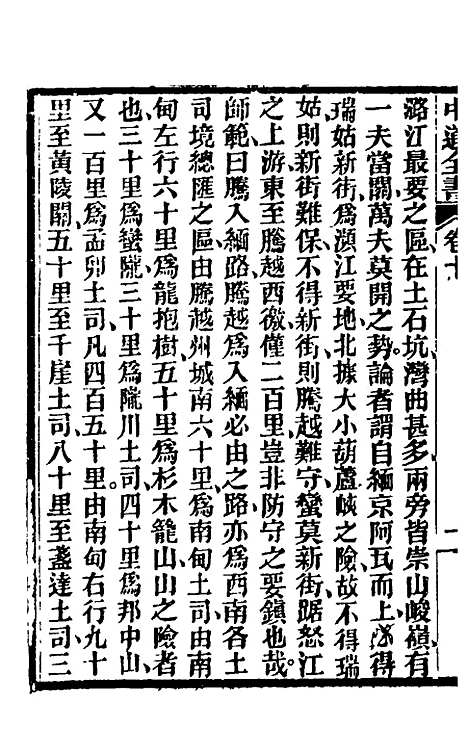 中道全書 卷十 二
潞江最要之區在土石坑灣曲甚多兩旁皆崇山峻嶺有
一夫當關萬夫莫開之勢論者謂自緬京阿瓦而上必得
瑞姑新街爲瀕江要地北據大小葫蘆峽之險故不得瑞
姑則新街難保不得新街則騰越難守蠻莫新街踞怒江
之上游東至騰越西徼僅二百里豈非防守之要鎮也哉
師範曰騰入緬路騰越爲入緬必由之路亦爲西南各土
司境總匯之區由騰越州城南六十里爲南甸土司由南
甸左行六十里爲龍抱樹五十里爲杉木籠山山之險者
也三十里爲蠻隴三十里爲隴川土司四十里爲邦中山
又一百里爲孟卯土司凡四百五十里由南甸右行九十
里至黃陵關五十里至千崖土司八十里至盞達土司三